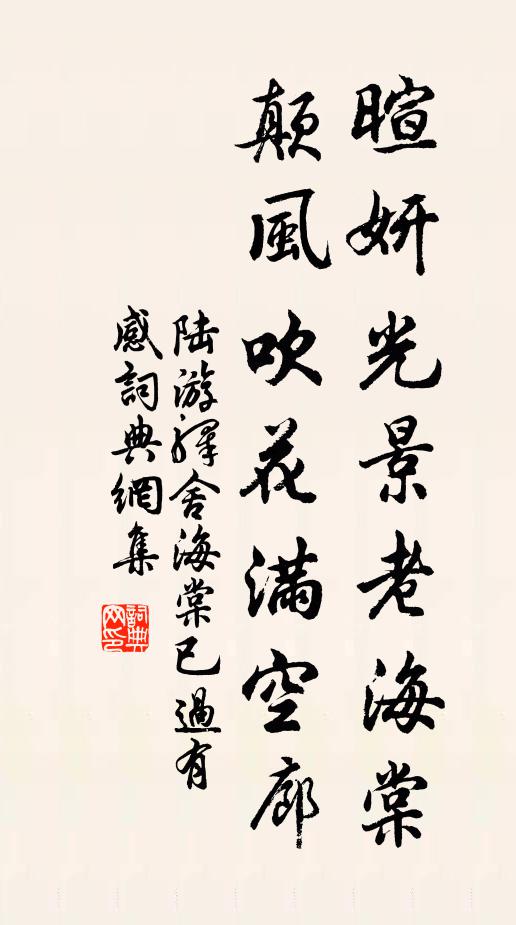 暄妍光景老海棠
颠風吹花滿空廊
陆游驛舍海棠已過有
感詞典網集
詞典
网印